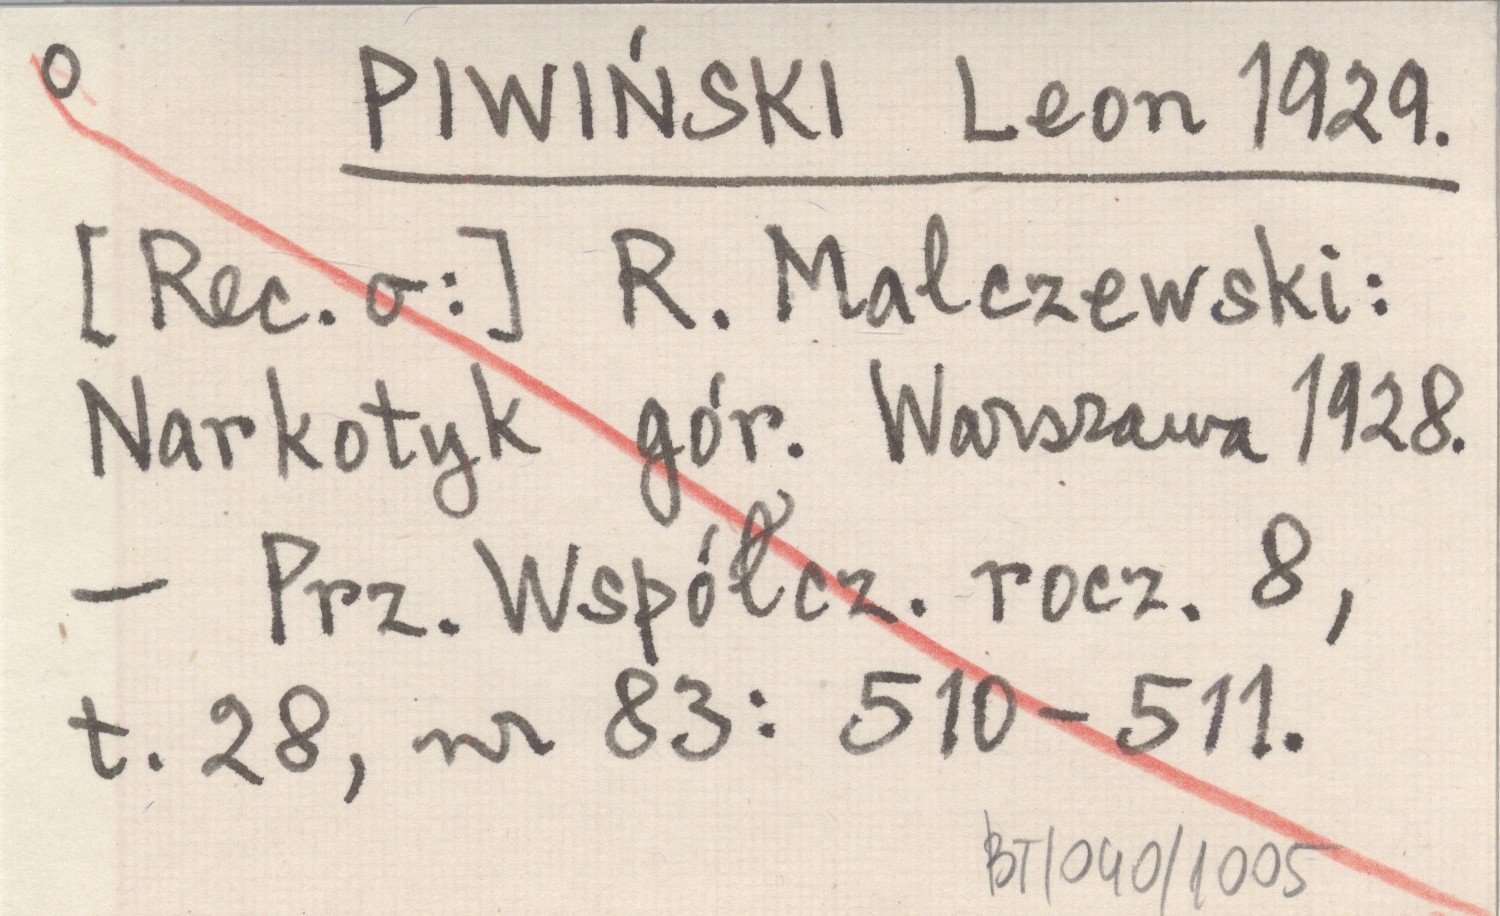 o PIWIŃSKI Leon 1929.
[Rec. o:] R. Malczewski:
Narkotyk gór. Warszawa 1928.
– Prz. Współcz. rocz. 8,
t. 28, nr 83: 510–511.
BT/040/1005